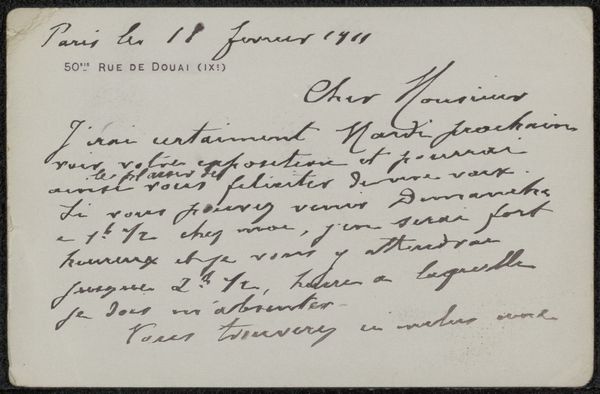 Paris le 18 fevrier 1911
50bis RUE DE DOUAI (IXe)
Cher Monsieur
J'irai certainement Mardi prochain
voir votre exposition et pourrai
le plaisir de
ainsi vous feliciter de vive voix.
Si vous pouvez venir Dimanche
a 1h 1/2 chez moi, j'en serai fort
heureux et je vous y attendrai
jusque 2h 1/2, heure a laquelle
je dois m'absenter
Vous trouverez